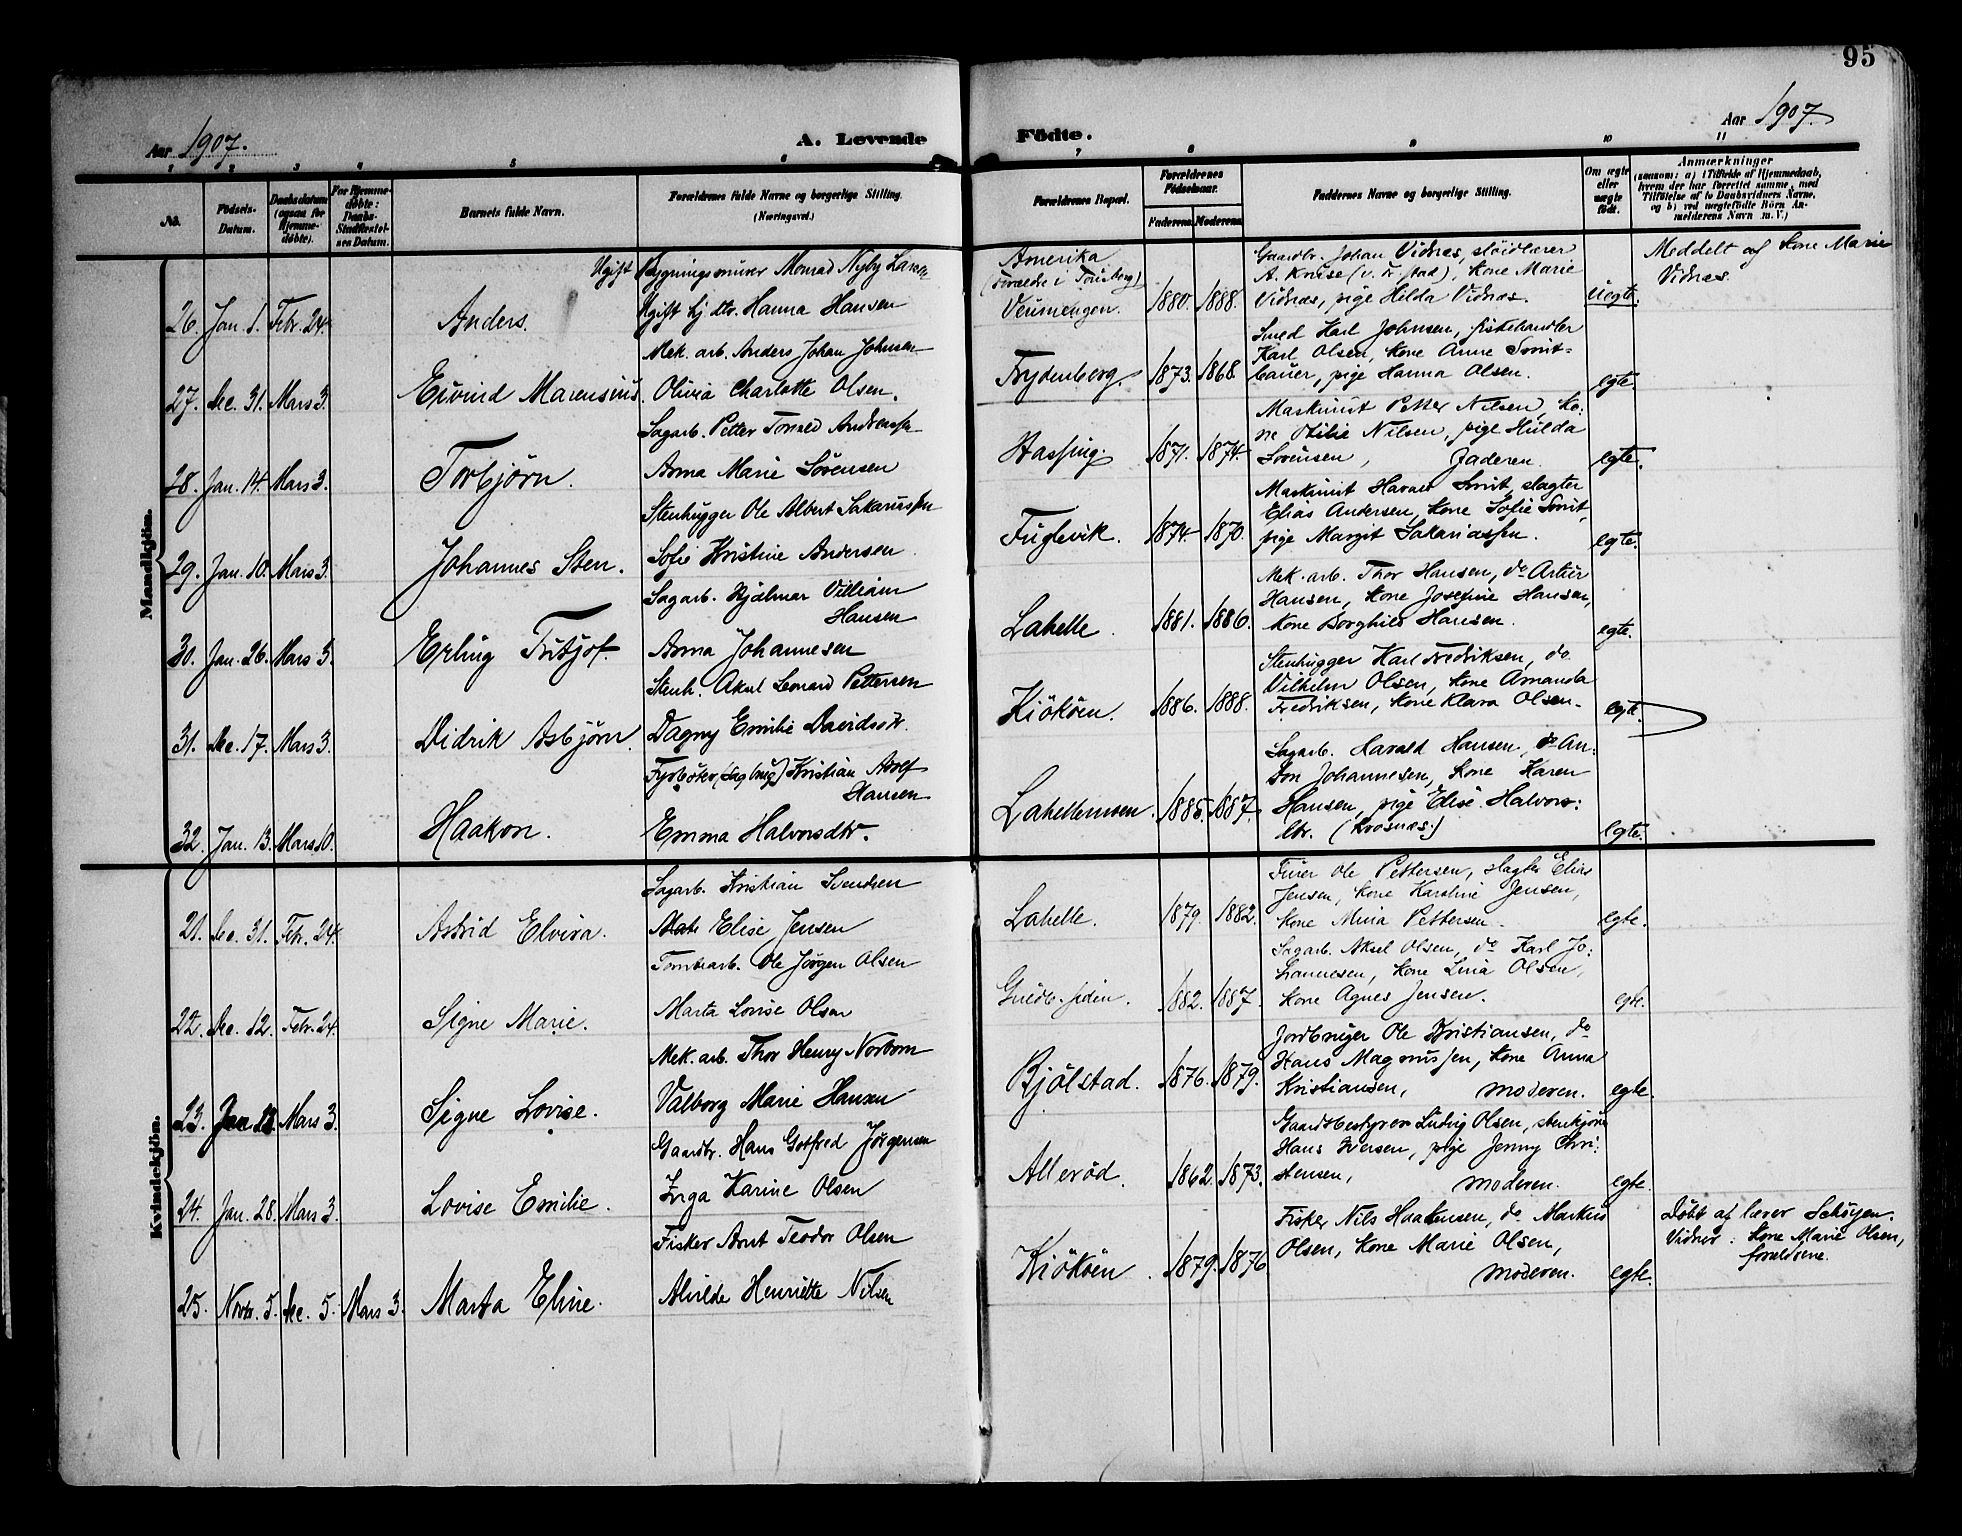 95
Aar 1907.
A. Levende
Födte.
Aar 1907.
1 2 3 4 5 6 7 8 9 10 11
No.
Födsels-Datum.
Daabsdatum (ogsaa for Hjemme-döbte).
For Hjemme-döbte: Daabs-Stadfæstel-sens Datum.
Barnets fulde Navn.
Forældrenes fulde Navne og borgerlige Stilling. (Næringsvei.)
Forældrenes Bopæl.
Forældrenes Födselsaar.
Faderens. Moderens.
Faddernes Navne og borgerlige Stilling.
Om ægte eller uægte födt.
Anmærkninger
(saasom: a) i Tilfælde af Hjemmedaab,
hvem der har forrettet samme, med
Tilföielse af to Daabsvidners Navne,
og b) ved uægtefödte Börn An-
melderens Navn m. V.)
Mandkjön.
26. Jan. 1. Febr. 24. Anders.
Ugift Bygningssnirer Monrad Nyby Larsen
Ugift tj. dtr. Hanna Hansen
Amerika
(Forældre i Tönsberg)
Veumengen. 1880. 1888.
Gaardbr. Johan Vidnæs, slöidlærer
A. Kruse (v. Fr.stad), Kone Marie
Vidnæs, pige Hilda Vidnæs.
Uegte.
Meddelt af Kone Marie
Vidnæs.
27. Dec. 31. Mars 3. Eivind Marensius.
Mek. arb. Anders Johan Johnsen
Olivia Charlotte Olsen.
Frydenberg. 1873. 1868.
Smed Karl Johnsen, fiskehandler
Karl Olsen, Kone Anne Smit-
bauer, pige Hanna Olsen.
egte
28. Jan. 14. Mars 3. Torbjörn.
Sagarb. Petter Torvald Andreassen
Anna Marie Sörensen
Hassing. 1871. 1874.
Maskinist Petter Nilsen, Ko-
ne Otilie Nilsen, pige Hulda
Sörensen, Faderen.
egte.
29. Jan. 10. Mars 3. Johannes Sten.
Stenhugger Ole Albert Sakariassen
Sofie Kristine Andersen
Fuglevik. 1874. 1870.
Maskinist Harald Smit, slagter
Elias Andersen, Kone Sofie Smit,
pige Margit Sakariassen.
egte.
30. Jan. 26. Mars 3. Erling Fritjof.
Sagarb. Hjalmar Villiam
Hansen
Anna Johannesen
Lahelle. 1881. 1886.
Mek. arb. Thor Hansen, do Artur
Hansen, Kone Josefine Hansen,
Kone Borghild Hansen.
egte.
31. Dec. 17. Mars 3. Didrik Asbjörn.
Stenh. Aksel Leonard Pettersen
Dagny Emilie Davidsdtr.
Kiököen. 1886. 1888.
Stenhugger Karl Fredriksen, do
Vilhelm Olsen, Kone Amanda
Fredriksen, Kone Klara Olsen.
egte.
32. Jan. 13. Mars 10. Haakon.
Fyrböter (Sagbrug) Kristian Adolf
Hansen
Emma Halvorsdtr.
Lahellemoen. 1885. 1887.
Sagarb. Harald Hansen, do An-
ton Johannesen, Kone Karen
Hansen, pige Elise Halvors-
dtr. (Krosnæs.)
egte.
Kvindekjön.
21. Dec. 31. Febr. 24. Astrid Elvira.
Sagarb. Kristian Svendsen
Elise Jensen
Lahelle. 1879. 1882.
Ole Pettersen, slagter Elias
Jensen, Kone Karoline Jensen,
Kone Mina Pettersen.
egte.
22. Dec. 12. Febr. 24. Signe Marie.
Tomtearb. Ole Jörgen Olsen
Marta Lovise Olsen
1882. 1887.
Sagarb. Aksel Olsen, do Karl Jo-
hannesen, Kone Lina Olsen,
Kone Agnes Jensen.
egte.
23. Jan 13. Mars 3. Signe Lovise.
Mek. arb. Thor Henry Norborn
Valborg Marie Hansen
Bjölstad. 1876. 1879.
Jordbruger Ole Kristiansen, do
Hans Magnussen, Kone Anna
Kristiansen, moderen.
egte.
24. Jan. 28. Mars 3. Lovise Emilie.
Gaardbr. Hans Gotfred Jörgensen
Inga Karine Olsen
Alleröd. 1862. 1873.
Gaardbestyrer Ludvig Olsen, stenkjörer
Hans Iversen, pige Jenny Chri-
stensen, moderen.
egte.
25. Novbr. 5. Dec. 5. Mars 3. Marta Eline.
Fisker Arnt Teodor Olsen
Alvilde Henriette Nilsen
Kiököen. 1879. 1876.
Fisker Nils Haakensen, do Markus
Olsen, Kone Marie Olsen,
moderen.
egte.
Döbt af lærer Schöyen.
Vidner: Kone Marie Olsen,
forældrene.